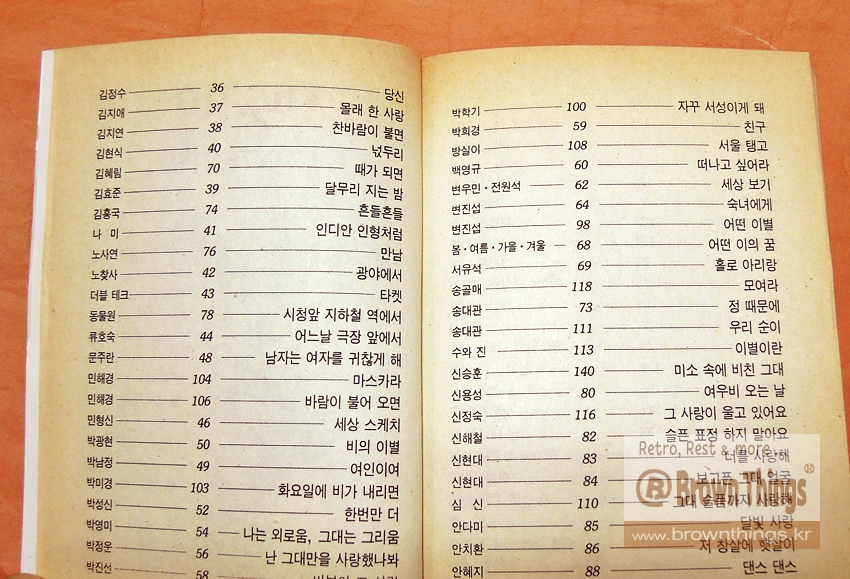 김정수 36 당신
김지애 37 몰래 한 사랑
김지연 38 찬바람이 불면
김현식 40 넋두리
김혜림 70 때가 되면
김효준 39 달무리 지는 밤
김흥국 74 흔들흔들
나 미 41 인디안 인형처럼
노사연 76 만남
노찾사 42 광야에서
더블 테크 43 타켓
동물원 78 시청앞 지하철 역에서
류호숙 44 어느날 극장 앞에서
문주란 48 남자는 여자를 귀찮게 해
민해경 104 마스카라
민해경 106 바람이 불어 오면
민형신 46 세상 스케치
박광현 50 비의 이별
박남정 49 여인이여
박미경 103 화요일에 비가 내리면
박성신 52 한번만 더
박영미 54 나는 외로움, 그대는 그리움
박정운 56 난 그대만을 사랑했나봐
박진선 58
박학기 100 자꾸 서성이게 돼
박희경 59 친구
방실이 108 서울 탱고
백영규 60 떠나고 싶어라
변우민·전원석 62 세상 보기
변진섭 64 숙녀에게
변진섭 98 어떤 이별
봄·여름·가을·겨울 68 어떤 이의 꿈
서유석 69 홀로 아리랑
송골매 118 모여라
송대관 73 정 때문에
송대관 111 우리 순이
수와 진 113 이별이란
신승훈 140 미소 속에 비친 그대
신용성 80 여우비 오는 날
신정숙 116 그 사랑이 울고 있어요
신해철 82 슬픈 표정 하지 말아요
신현대 83 너를 사랑해
신현대 84 보고픈 그대 얼굴
심 신 110 그대 슬픔까지 사랑해
안다미 85 달빛 사랑
안치환 86 저 창살에 햇살이
안혜지 88 댄스 댄스
Retro, Rest & more
Brown Things ®
www.brownthings.kr